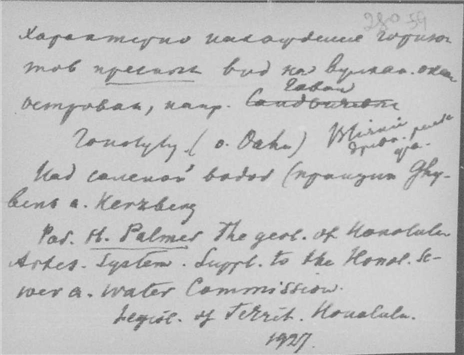 28054
Характерно нахождение горизон
тов пресных вод на вулкан. океан
островах, напр. Гаваи
Гонолулу (о. Oahu)
Над соленой водой (принцип Ghy
bena a. Herzberg
Pad. H. Palmer The geol. of Honolulu
Artes. System. Suppl. to the Honol. Se-
wer a. Water Commission.
Legisl. of Territ. Honolulu.
1927.